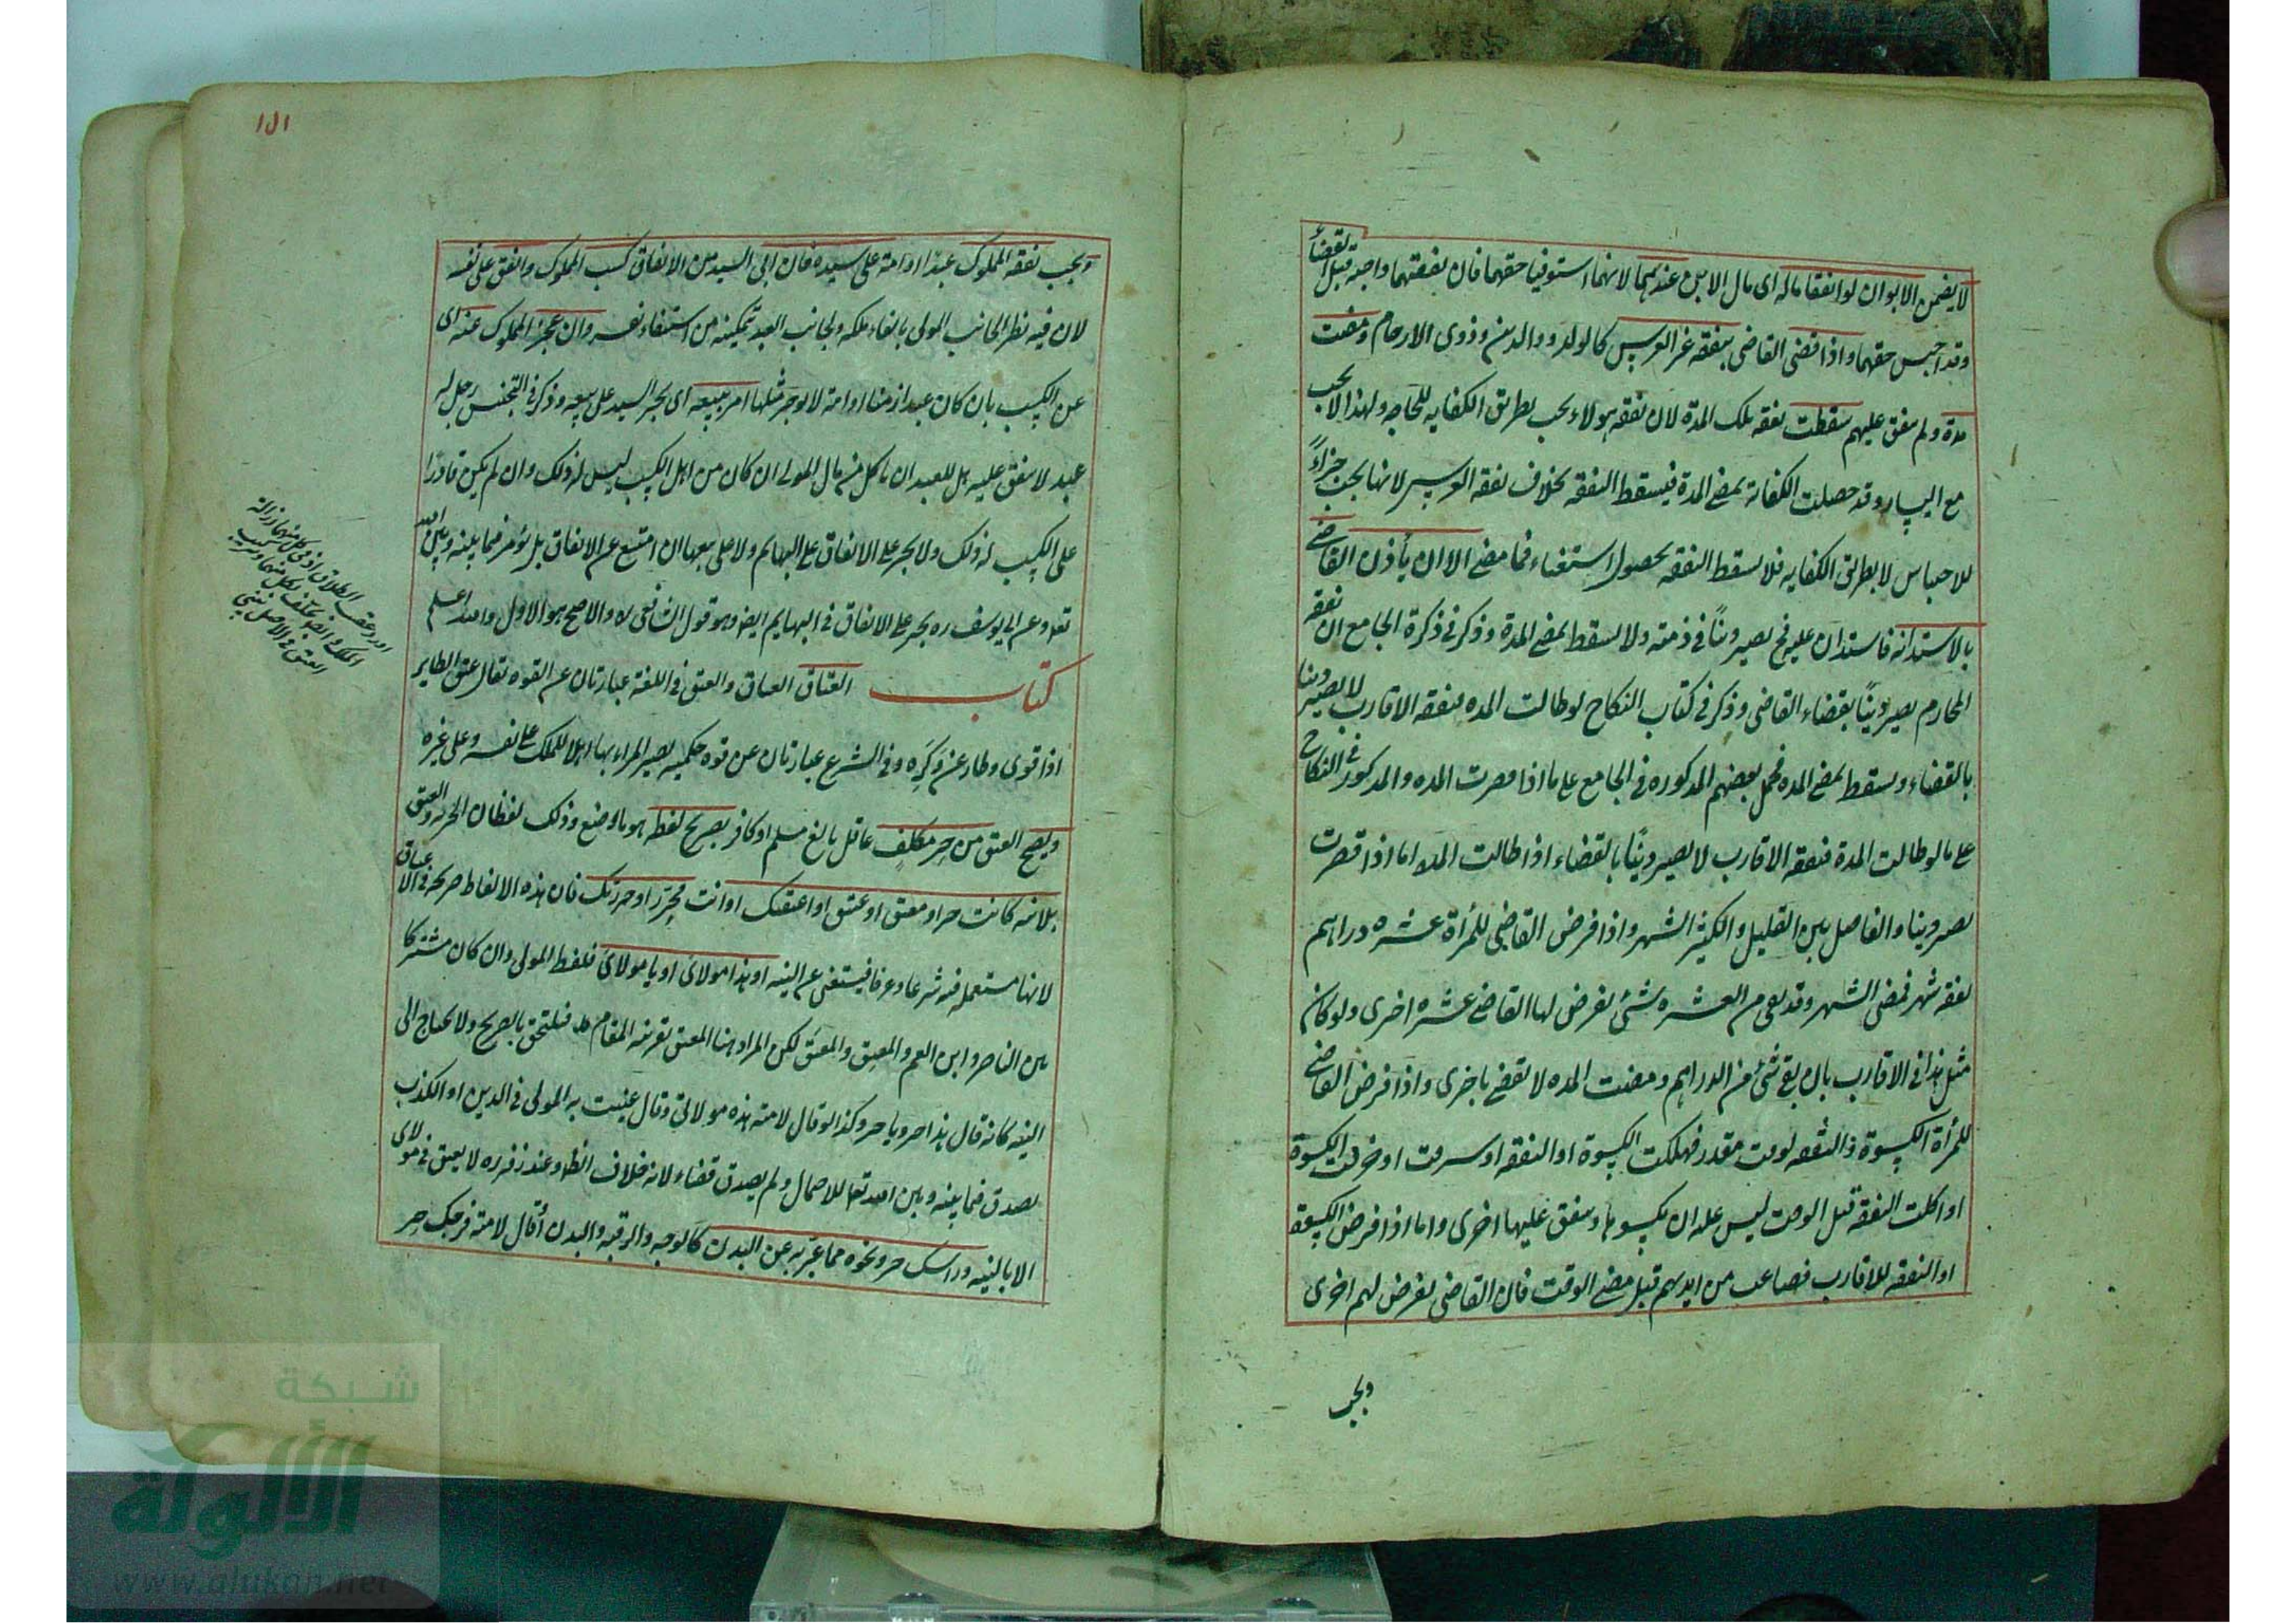 لا يضمن الابوان لو انفقا ماله اى مال الابن عندهما لانهما استوفيا حقهما فان نفقتهما واجبة قبل القضاء
وقد اخذا جنس حقهما واذا قضى القاضى بنفقة غير العرس كالولد و والدين وذوى الارحام ومضت
مدة ولم ينفق عليهم سقطت نفقة تلك المدة لان نفقة هولاء يجب بطريق الكفايه للحاجه ولهذا لا يجب
مع اليسار وقد حصلت الكفاية بمضى المدة فيسقط النفقة بخلاف نفقة العرس لانها يجب جزاءً
للاحتباس لا بطريق الكفايه فلا يسقط النفقة بحصول استغناء فيما مضى الا ان يأذن القاضى
بالاستدانه فاستدان عليه فح يصير ديناً فى ذمته ولا يسقط بمضى المدة وذكر فى ذكرة الجامع ان نفقه
المحارم يصير ديناً بقضاء القاضى وذكر فى كتاب النكاح لو طالت المده نفقه الاقارب لا يصير دينا
بالقضاء ويسقط بمضى المده فحمل بعضهم المذكوره فى الجامع على ما اذا قصرت المده والمذكور فى النكاح
على ما لو طالت المدة فنفقه الاقارب لا يصير ديناً بالقضاء اذا طالت المده اما اذا قصرت
يصير دينا والفاصل بين القليل والكثير الشهر واذا فرض القاضى للمرأة عشره دراهم
نفقه شهر فمضى الشهر وقد بقى من العشره شئ يفرض لها القاضى عشره اخرى ولو كان
مثل هذا فى الاقارب بان بقى شئ من الدراهم ومضت المده لا يقضى باخرى واذا فرض القاضى
للمرأة الكسوة والنفقه لوقت مقدر فهلكت الكسوة او النفقه او سرقت او خرقت الكسوة
او اكلت النفقه قبل الوقت ليس عليه ان يكسوها وينفق عليها اخرى واما اذا فرض الكسوة
او النفقه للاقارب فضاعت من ايديهم قبل مضى الوقت فان القاضى يفرض لهم اخرى
ويجب
١٥١
ويجب نفقه المملوك عبدا او امة على سيده فان ابى السيد من الانفاق كسب المملوك وانفق على نفسه
لان فيه نظرا لجانب المولى بابقاء ملكه ولجانب العبد تمكينه من استبقاء نفسه وان عجز المملوك عنه اى
عن الكسب بان كان عبدا زمنا او امة لا يوجر مثلها امر ببيعه اى يجبر السيد على بيعه وذكر فى التجنيس رجل له
عبد لا ينفق عليه هل للعبد ان ياكل من مال المولى ان كان من اهل الكسب ليس له ذلك وان لم يكن قادرا
على الكسب له ذلك ولا يجبر على الانفاق على البهايم ولا على بيعها ان امتنع عن الانفاق بل يؤمر فيما بينه وبين الله
تعا وعن ابى يوسف ره يجبر على الانفاق فى البهايم ايضا وهو قول الشافعى ره والاصح هو الاول والله اعلم
كتاب العتاق العتاق والعتق فى اللغة عبارتان عن القوه يقال عتق الطاير
اذا قوى وطار عن وَكَرِه وفى الشرع عبارتان عن قوه حكميه يصير المرء بها اهلا للملك على نفسه وعلى غيره
ويصح العتق من حر مكلف عاقل بالغ مسلم او كافر بصريح لفظه هو ما وضع وذلك لفظان الحريه والعتق
بلا نيه كانت حر او معتق او عتيق او اعتقتك او انت محرر او حررتك فان هذه الالفاظ صريحه فى الاعتاق
لانها مستعمله فيه شرعا وعرفا فيستغنى عن النيه او هذا مولاى او يا مولاى فلفظ المولى وان كان مشتركا
بين الناصر وابن العم والمعتِق والمعتَق لكن المراد هنا المعتق بقرينه المقام فيلتحق بالصريح ولا يحتاج الى
النيه كانه قال هذا حر ويا حر وكذا لو قال لامته هذه مولاتى وقال عنيت به المولى فى الدين او الكذب
يصدق فيما بينه وبين الله تعا للاحتمال ولم يصدق قضاء لانه خلاف الظا وعند زفر ره لا يعتق فى مولاى
الا بالنيه وراسك حر ونحوه مما عبر به عن البدن كالوجه والرقبه والبدن أقال لامته فرجك حر
اورد عقيب الطلاق
العتق فى الاصل
شبكة
الألوكة
www.alukah.net